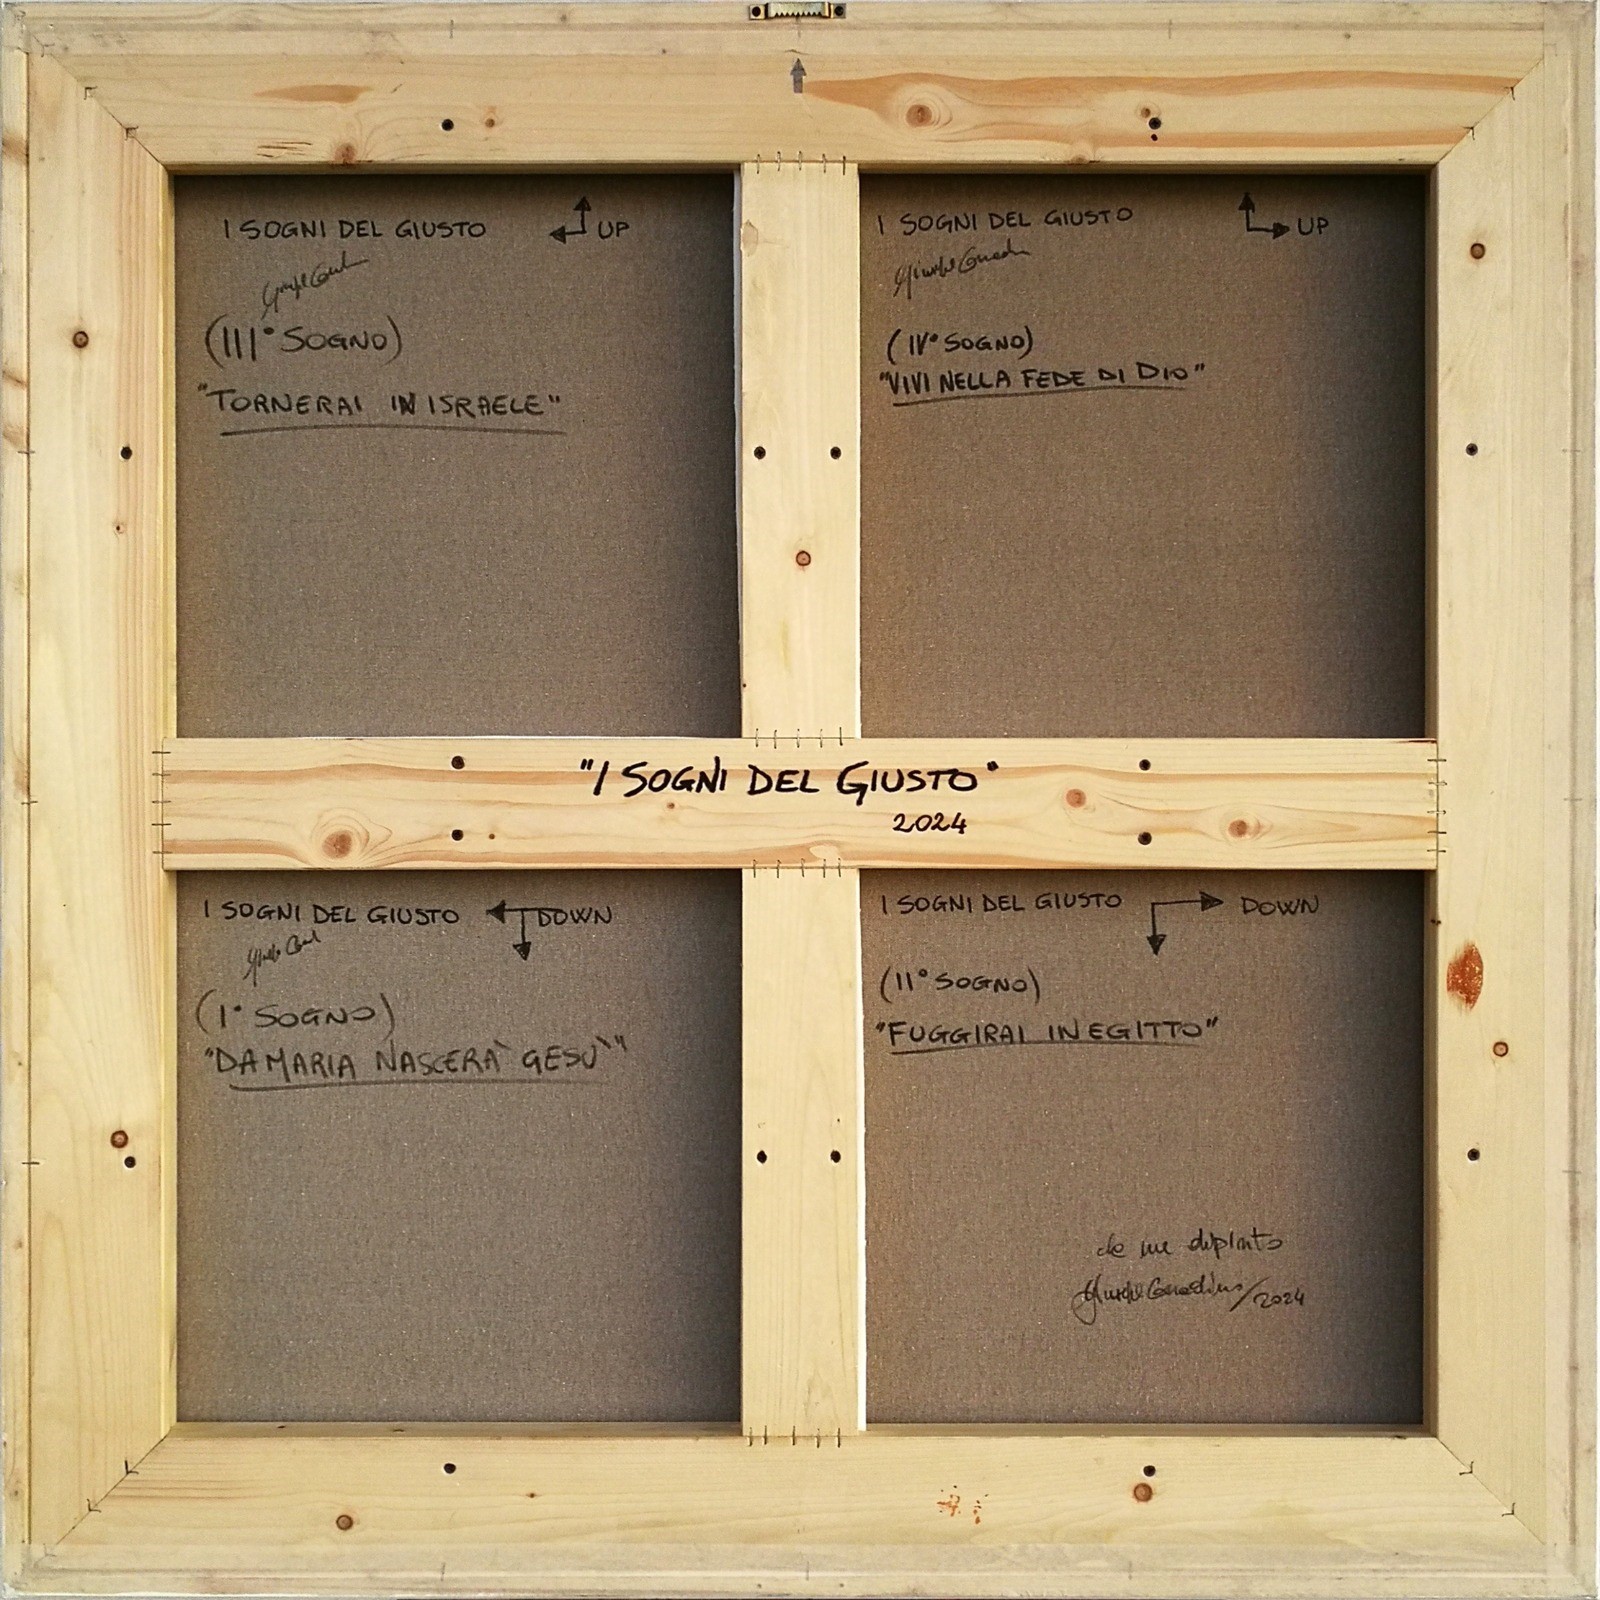 I SOGNI DEL GIUSTO UP
(III° SOGNO)
"TORNERAI IN ISRAELE"
I SOGNI DEL GIUSTO UP
(IV° SOGNO)
"VIVI NELLA FEDE DI DIO"
"I SOGNI DEL GIUSTO"
2024
I SOGNI DEL GIUSTO DOWN
(I° SOGNO)
"DA MARIA NASCERÀ GESÙ"
I SOGNI DEL GIUSTO DOWN
(II° SOGNO)
"FUGGIRAI IN EGITTO"
da me dipinto
/2024